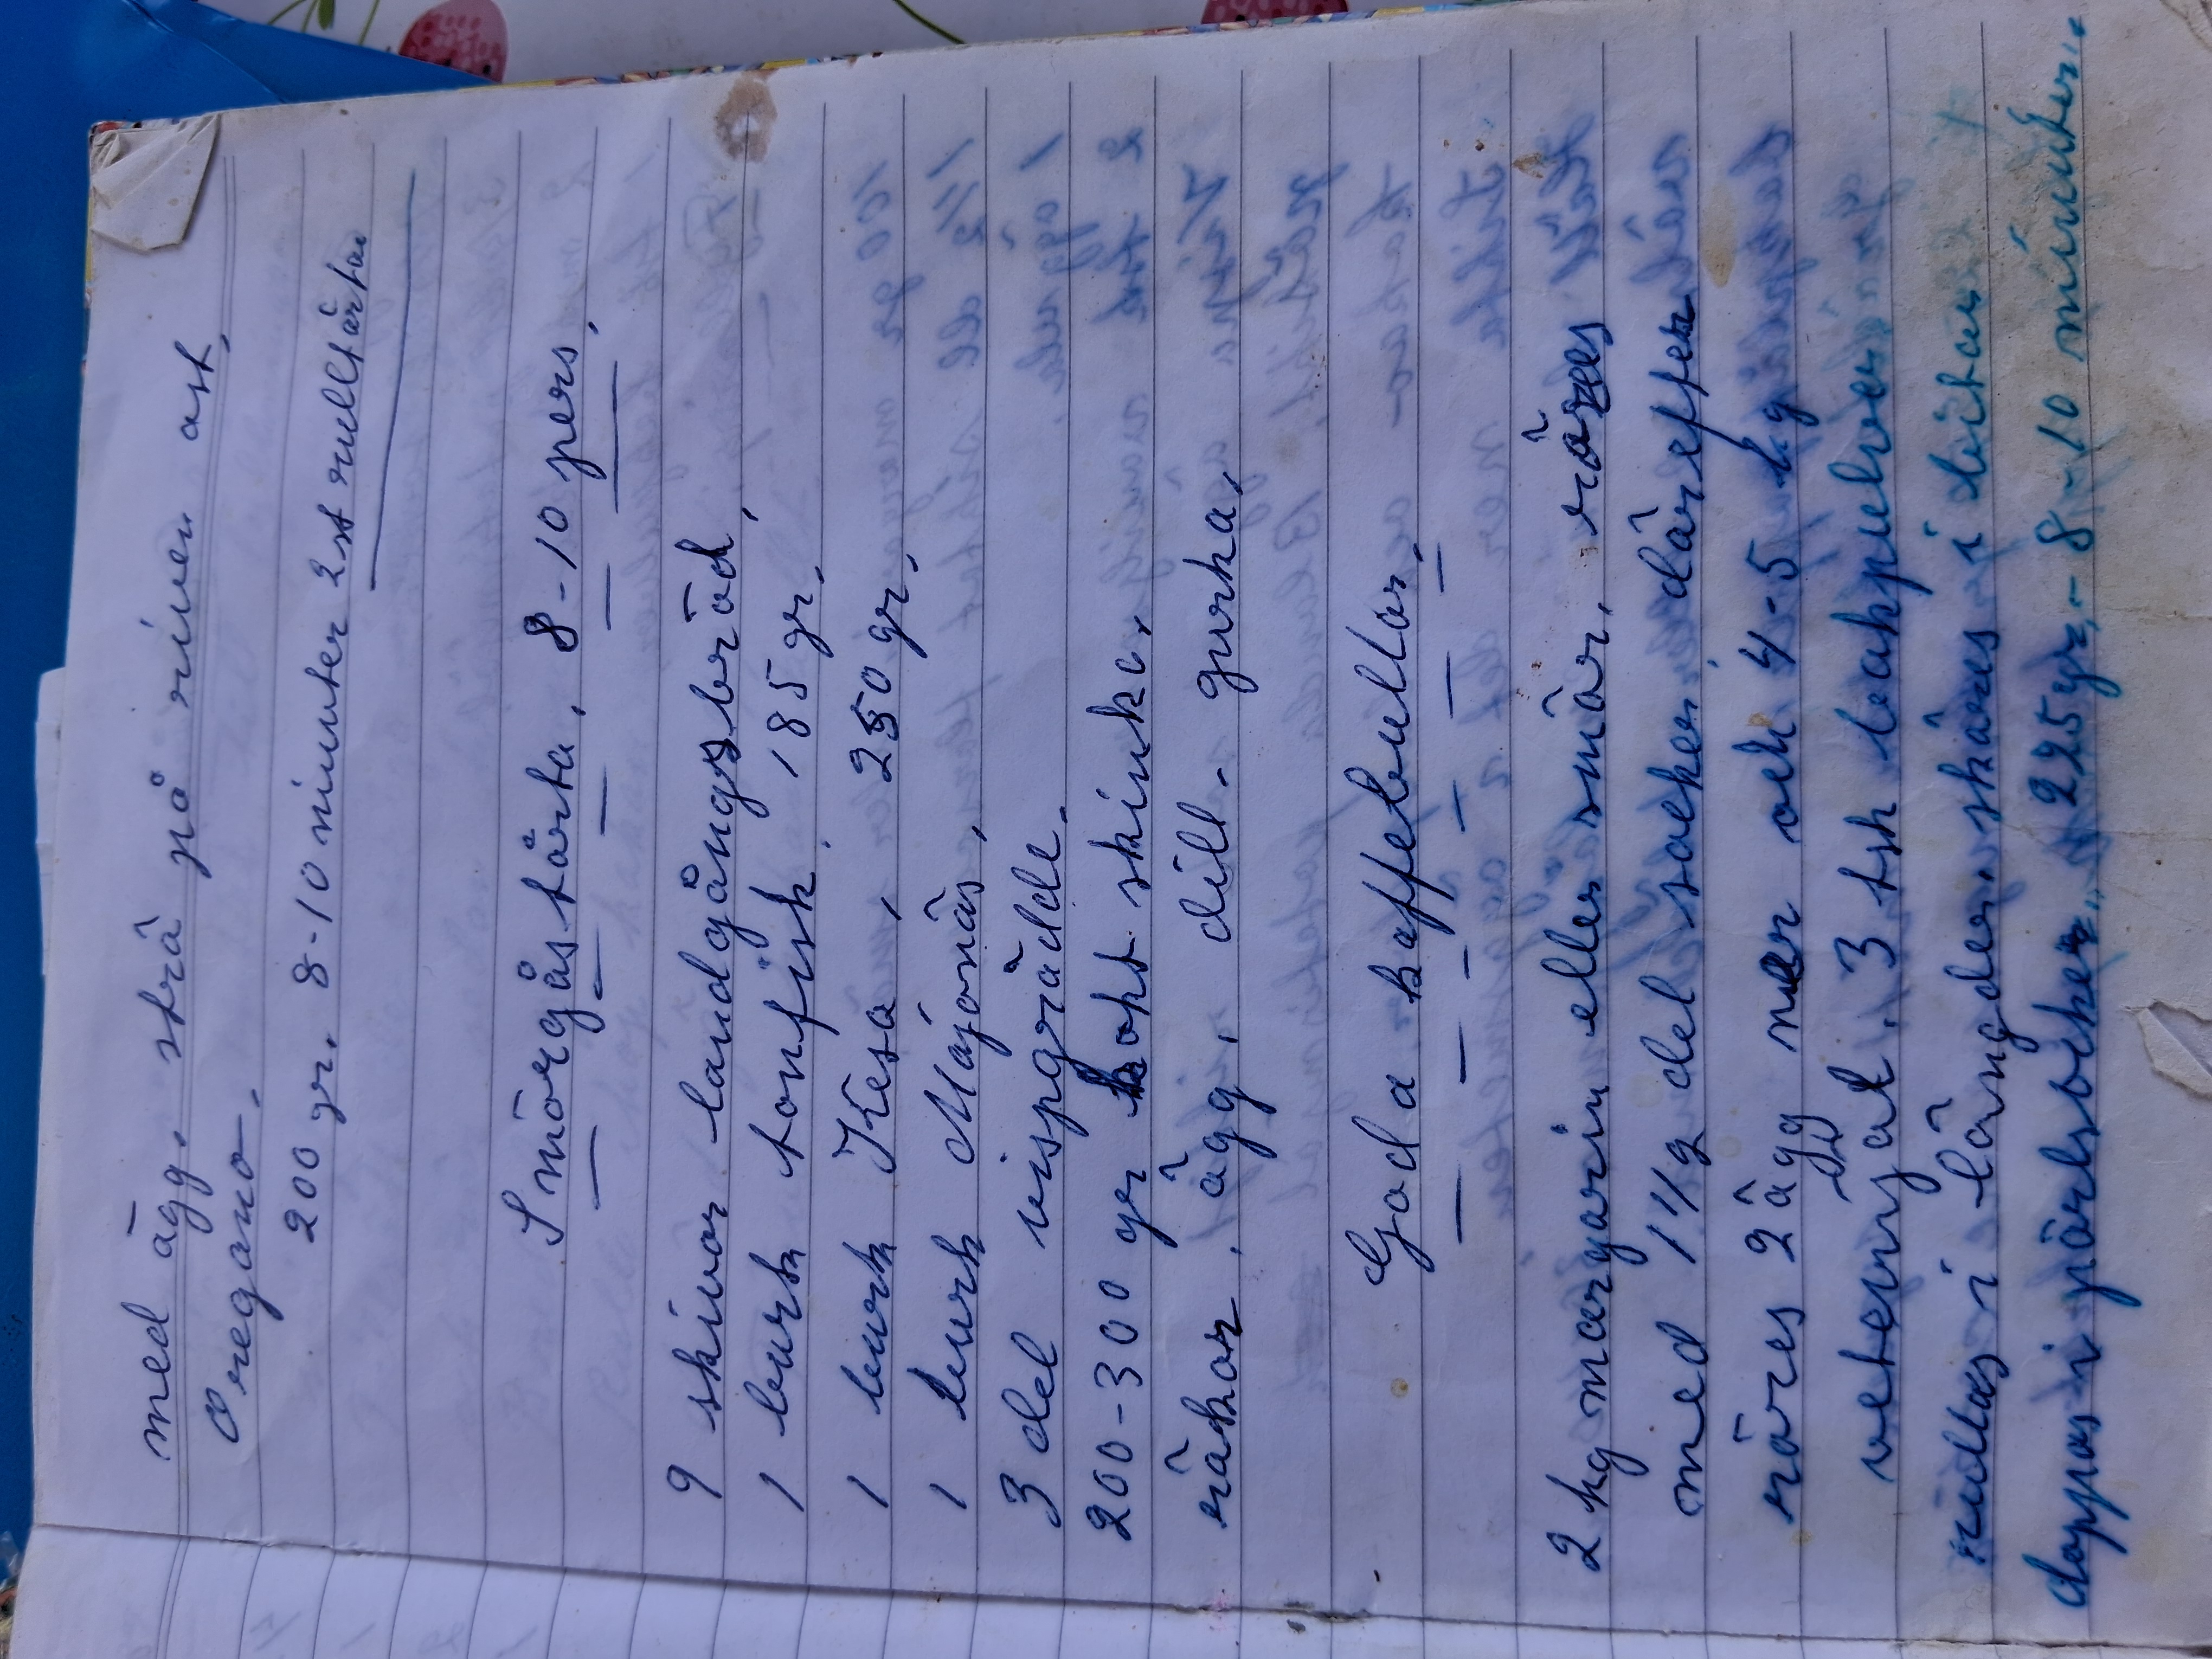 med ägg. strö på riven ost,
Oregano.
200 gr. 8-10 minuter 2st rulltårtor
Smörgåstårta. 8-10 pers.
9 skivor landgångsbröd,
1 burk tonfisk. 185 gr.
1 burk Kesa, 250 gr.
1 burk Majonäs,
3 del vispgrädde.
200-300 gr kokt skinka.
räkor. ägg. dill. gurka,
God a kaffebullar.
2 kg margarin eller smör. röres
med 1 1/2 del socker. därefter
röres 2 ägg ner och 4-5 kg
vetemjöl. 3 tsk bakpulver
rullas i längder. skäres i bitar
doppas i pärlsocker. 225 gr. 8-10 minuter.